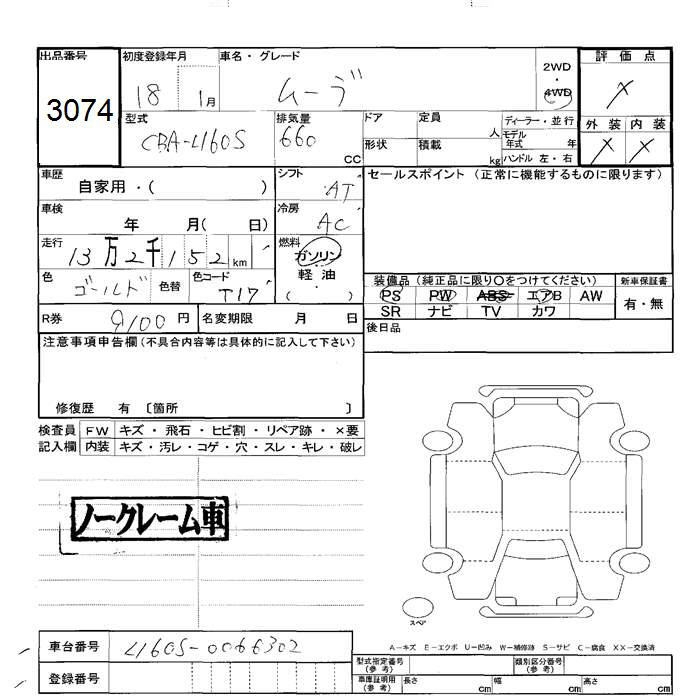 出品番号 初度登録年月 車名・グレード 評価点
3074 18 1月 ムーブ 2WD・4WD
型式 排気量 ドア 定員 人 ディーラー・並行 外装 内装
CBA-L160S 660 CC 形状 積載 kg モデル年式 年 ハンドル 左・右
車歴 自家用・( ) シフト AT セールスポイント (正常に機能するものに限ります)
車検 年 月( 日) 冷房 AC
走行 13万2千152km 燃料 ガソリン
軽油
色 ゴールド 色替 色コード T17 ( ) 装備品 (純正品に限り○をつけてください) 新車保証書
PS PW ABS エアB AW 有・無
SR ナビ TV カワ
R券 9100円 名変期限 月 日 後日品
注意事項申告欄(不具合内容等は具体的に記入して下さい)
修復歴 有 〔箇所 〕
検査員 FW キズ・飛石・ヒビ割・リペア跡・×要
記入欄 内装 キズ・汚レ・コゲ・穴・スレ・キレ・破レ
ノークレーム車
スペア
車台番号 L160S-0066302
A−キズ E−エクボ U−凹み W−補修跡 S−サビ C−腐食 XX−交換済
型式指定番号(参考) 類別区分番号(参考)
登録番号 車庫証明用(参考) 長さ cm 幅 cm 高さ cm